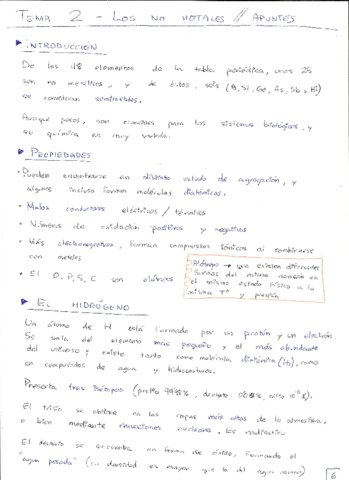 TEMA 2 - LOS NO METALES // APUNTES
INTRODUCCIÓN
De los 118 elementos de la tabla periódica, unos 25
son no metálicos, y de éstos, seis (B, Si, Ge, As, Sb
se consideran semimetales.
Aunque pocos, son esenciales para los sistemas biológicos, y
su química es muy variada.
PROPIEDADES
Pueden encontrarse en distinto estado de agregación, y
algunos incluso forman moléculas diatómicas.
Malos conductores eléctricos / térmicos
Números de oxidación positivos y negativos
Más electronegativos, forman compuestos iónicos al combinarse
con metales
El O, P, S, C son alótropos
Alótropo → que existen diferentes
formas del mismo elemento en
el mismo estado físico a la
misma Tª y presión
EL HIDRÓGENO
Un átomo de H está formado por un protón y un electrón.
Se trata del elemento más pequeño y el más abundante
del universo; existe tanto como molécula diatómica (H₂), como
en compuestos de agua y hidrocarburos.
Presenta tres isótopos (protio deuterio
El tritio se obtiene en las capas más altas de la atmósfera,
o bien mediante reacciones nucleares. Es radiactivo.
El deuterio se encuentra en forma de óxido, formando el
"agua pesada" (su densidad es mayor que la del agua normal)
6